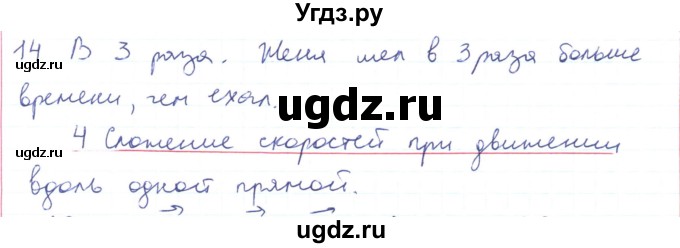 Угдз.ру
14 В 3 раза. Женя шел в 3 раза больше
времени, чем ехал.
ugdz.ru
4 Сложение скоростей при движении
вдоль одной прямой.
ugdz.ru
ugdz.ru
ugdz.ru
ugdz.ru
ugdz.ru